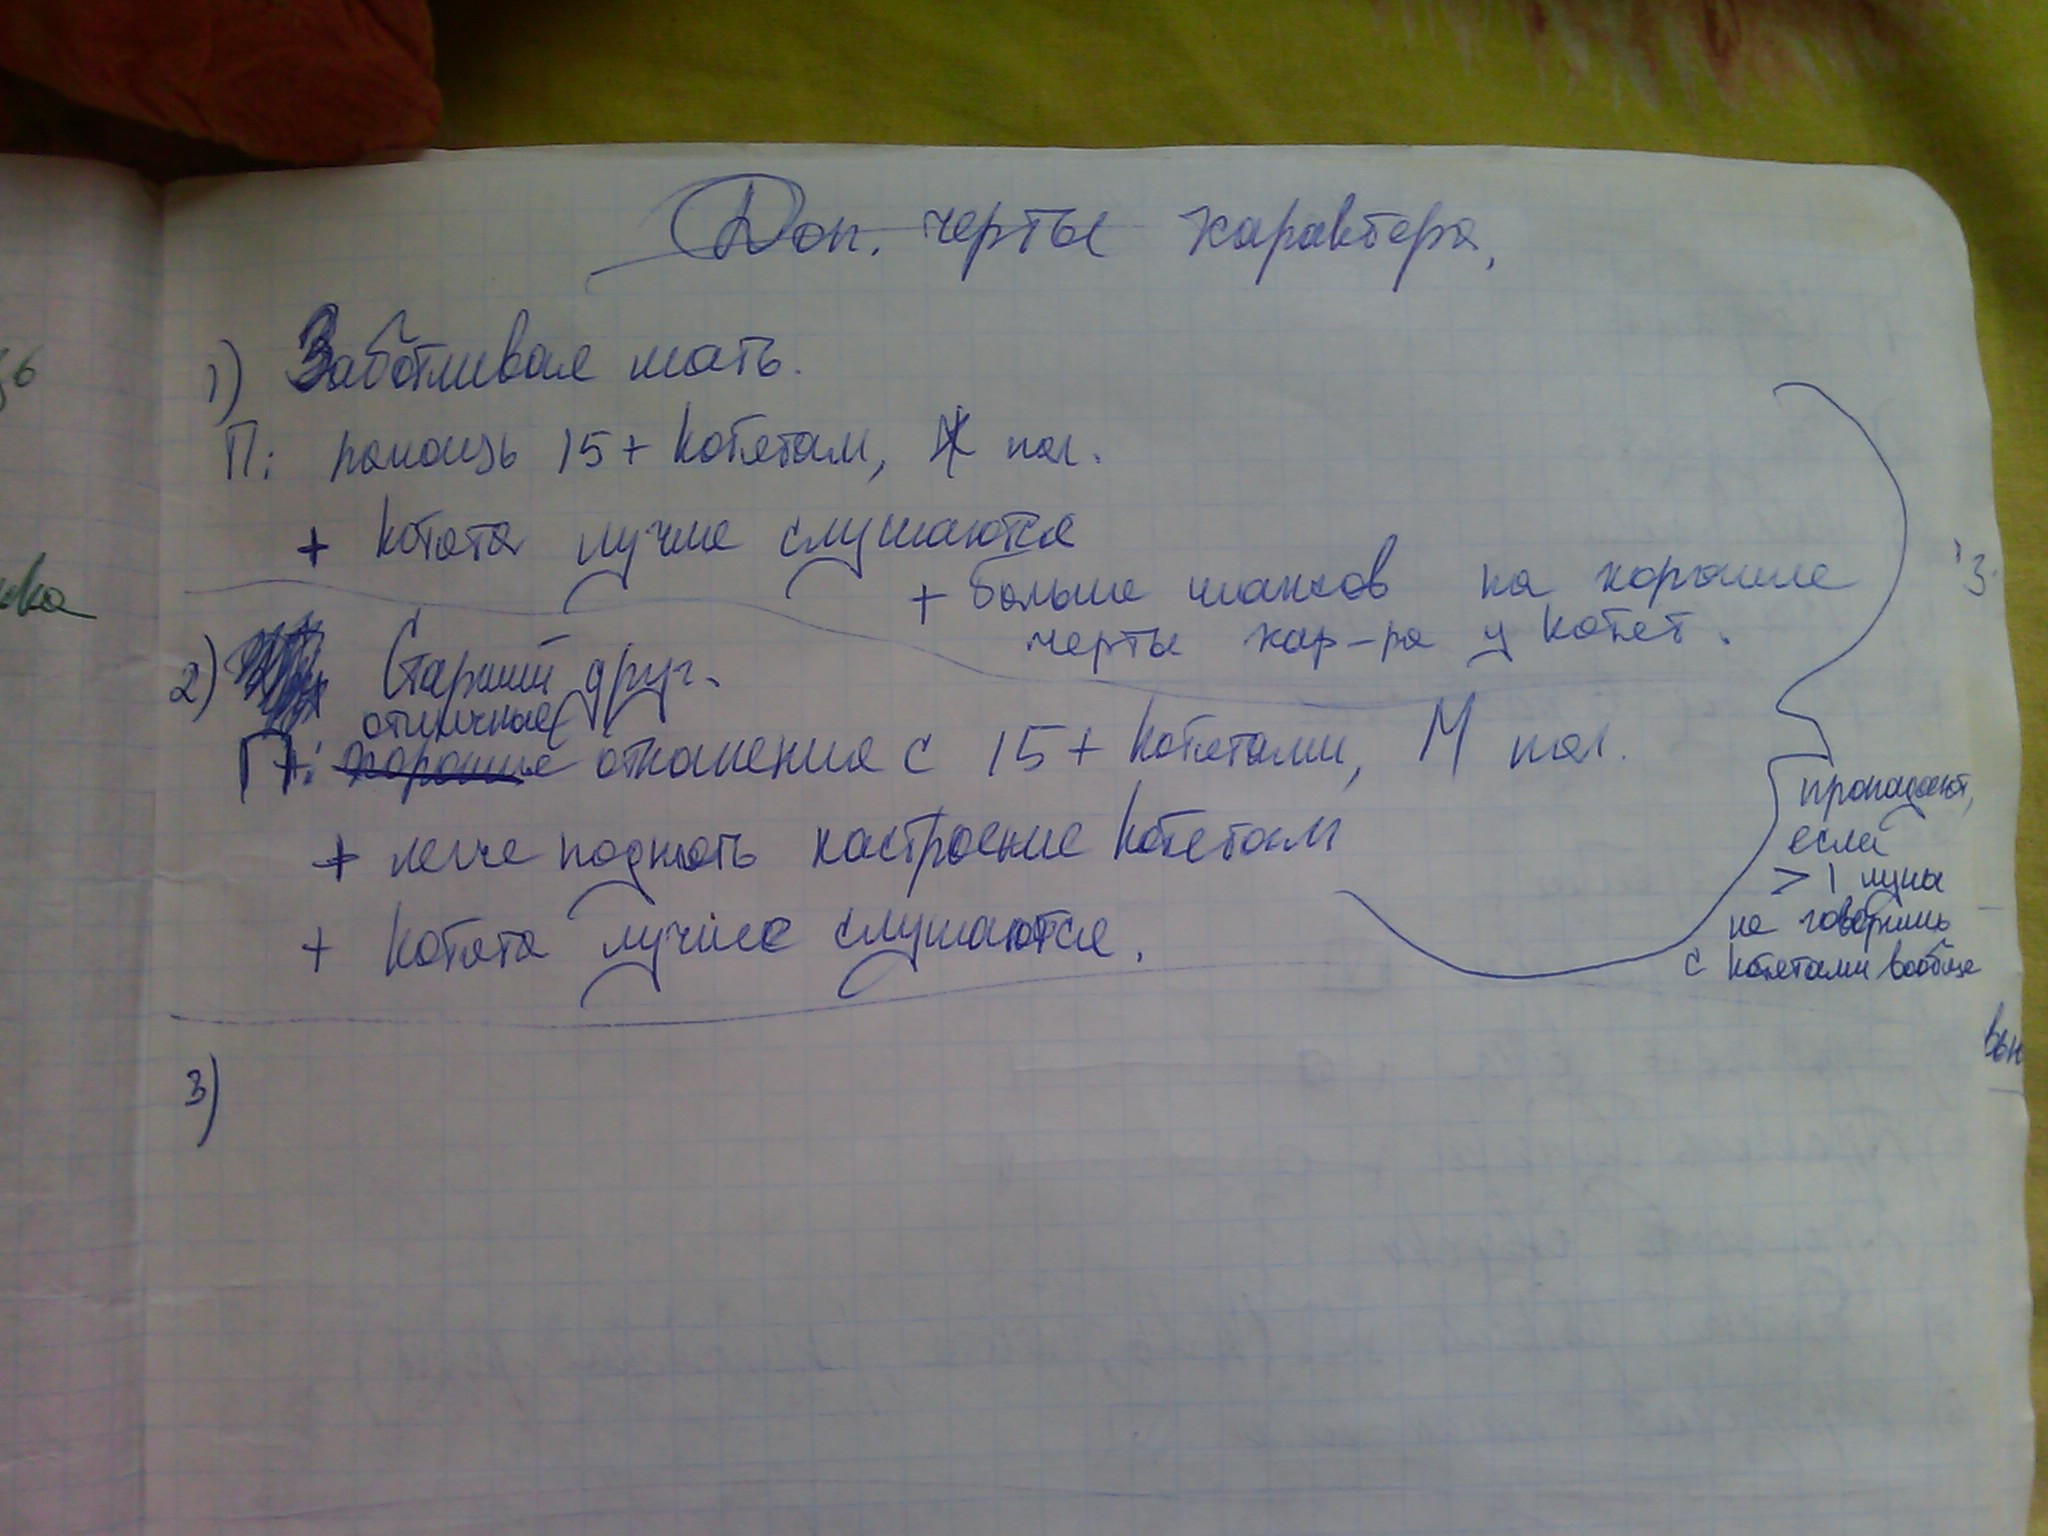 Доп. черты характера.
1) Заботливая мать.
П: помощь 15+ котятам, Ж пол.
+ котята лучше слушаются
+ больше шансов на хорошие
черты хар-ра у котят.
2) Старший друг.
отличные
П: хорошие отношения с 15+ котятами, М пол.
+ легче поднять настроение котятам
+ котята лучше слушаются.
пропадают,
если
> 1 луны
не говоришь
с котятами вообще
3)